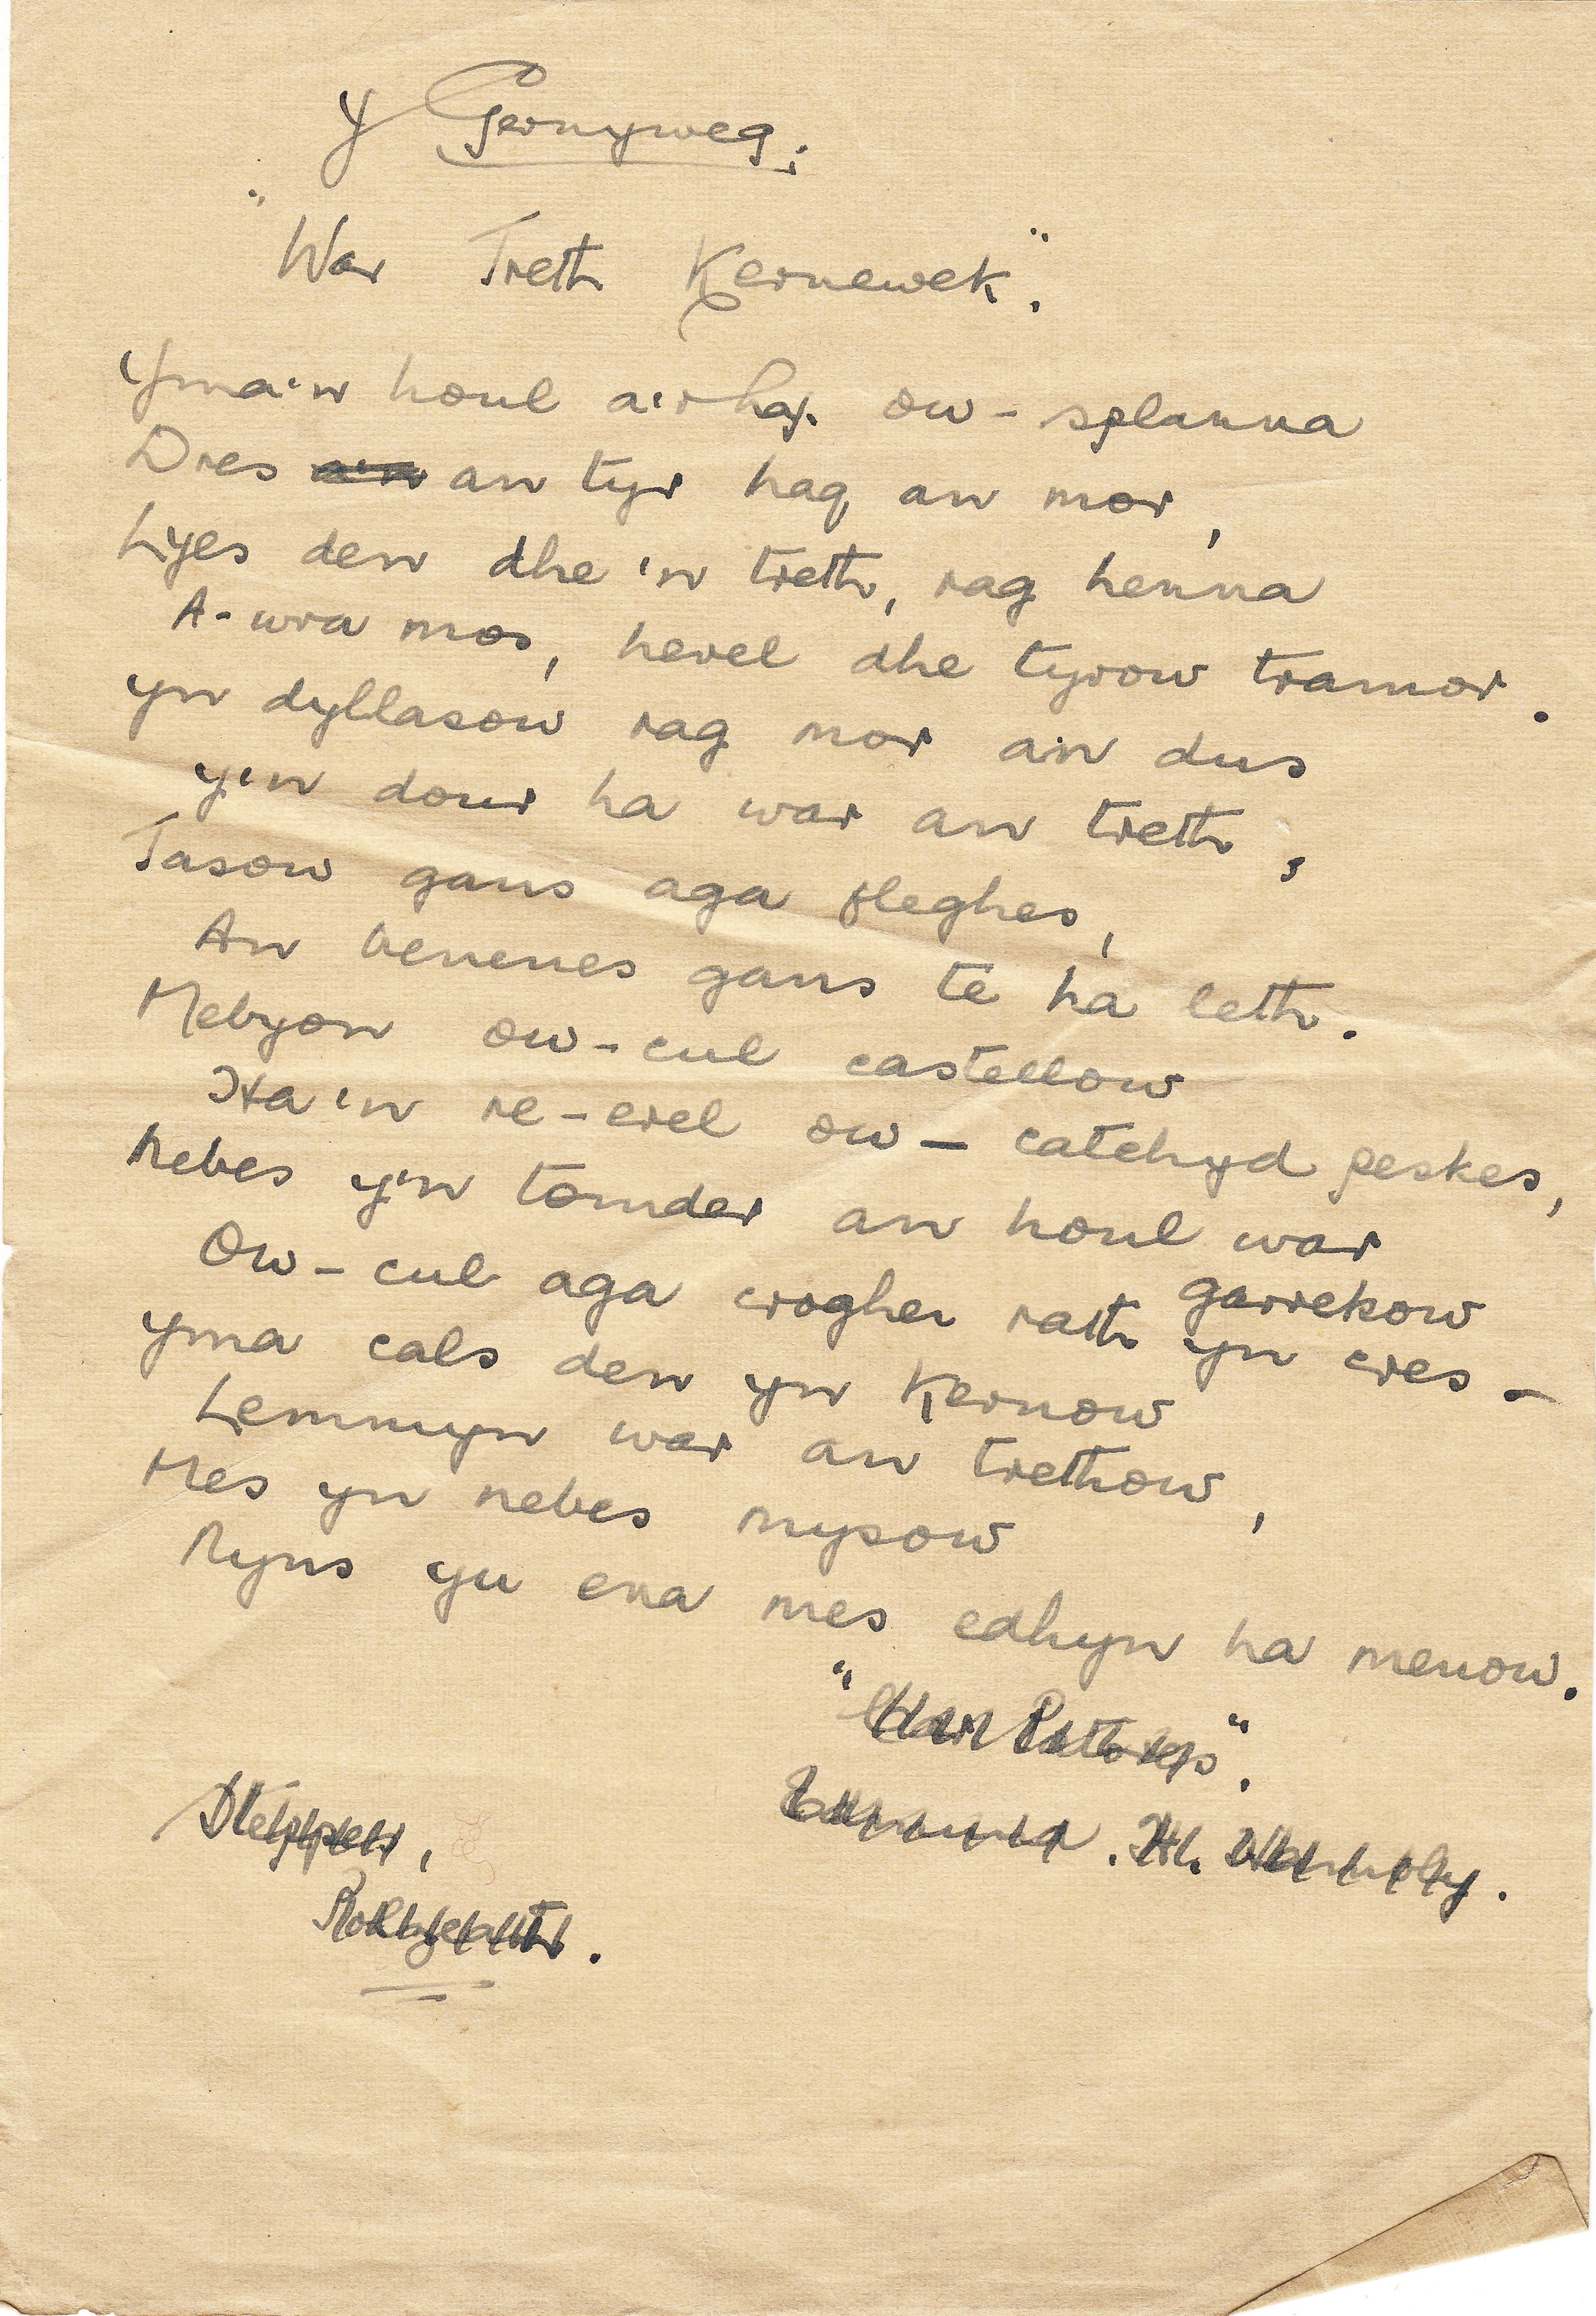 Y Gernyweg:
"War Treth Kernewek".
Yma'n houl a'r haf ow-splanna
Dres an tyr hag an mor,
Lyes den dhe'n treth, rag henna
A-wra mos, hevel dhe tyrow tramor.
Yn dyllasow rag mor an dus
y'n dour ha war an treth,
Tasow gans aga fleghes,
An benenes gans te ha leth.
Mebyon ow-cul castellow
Ha'n re-erel ow-catchyd peskes,
Nebes y'n tomder an houl war
garrekow
Ow-cul aga croghen rath yn cres -
Yma cals den yn Kernow
Lemmyn war an trethow,
Mes yn nebes mysow
Nyns yu ena mes edhyn ha menow.